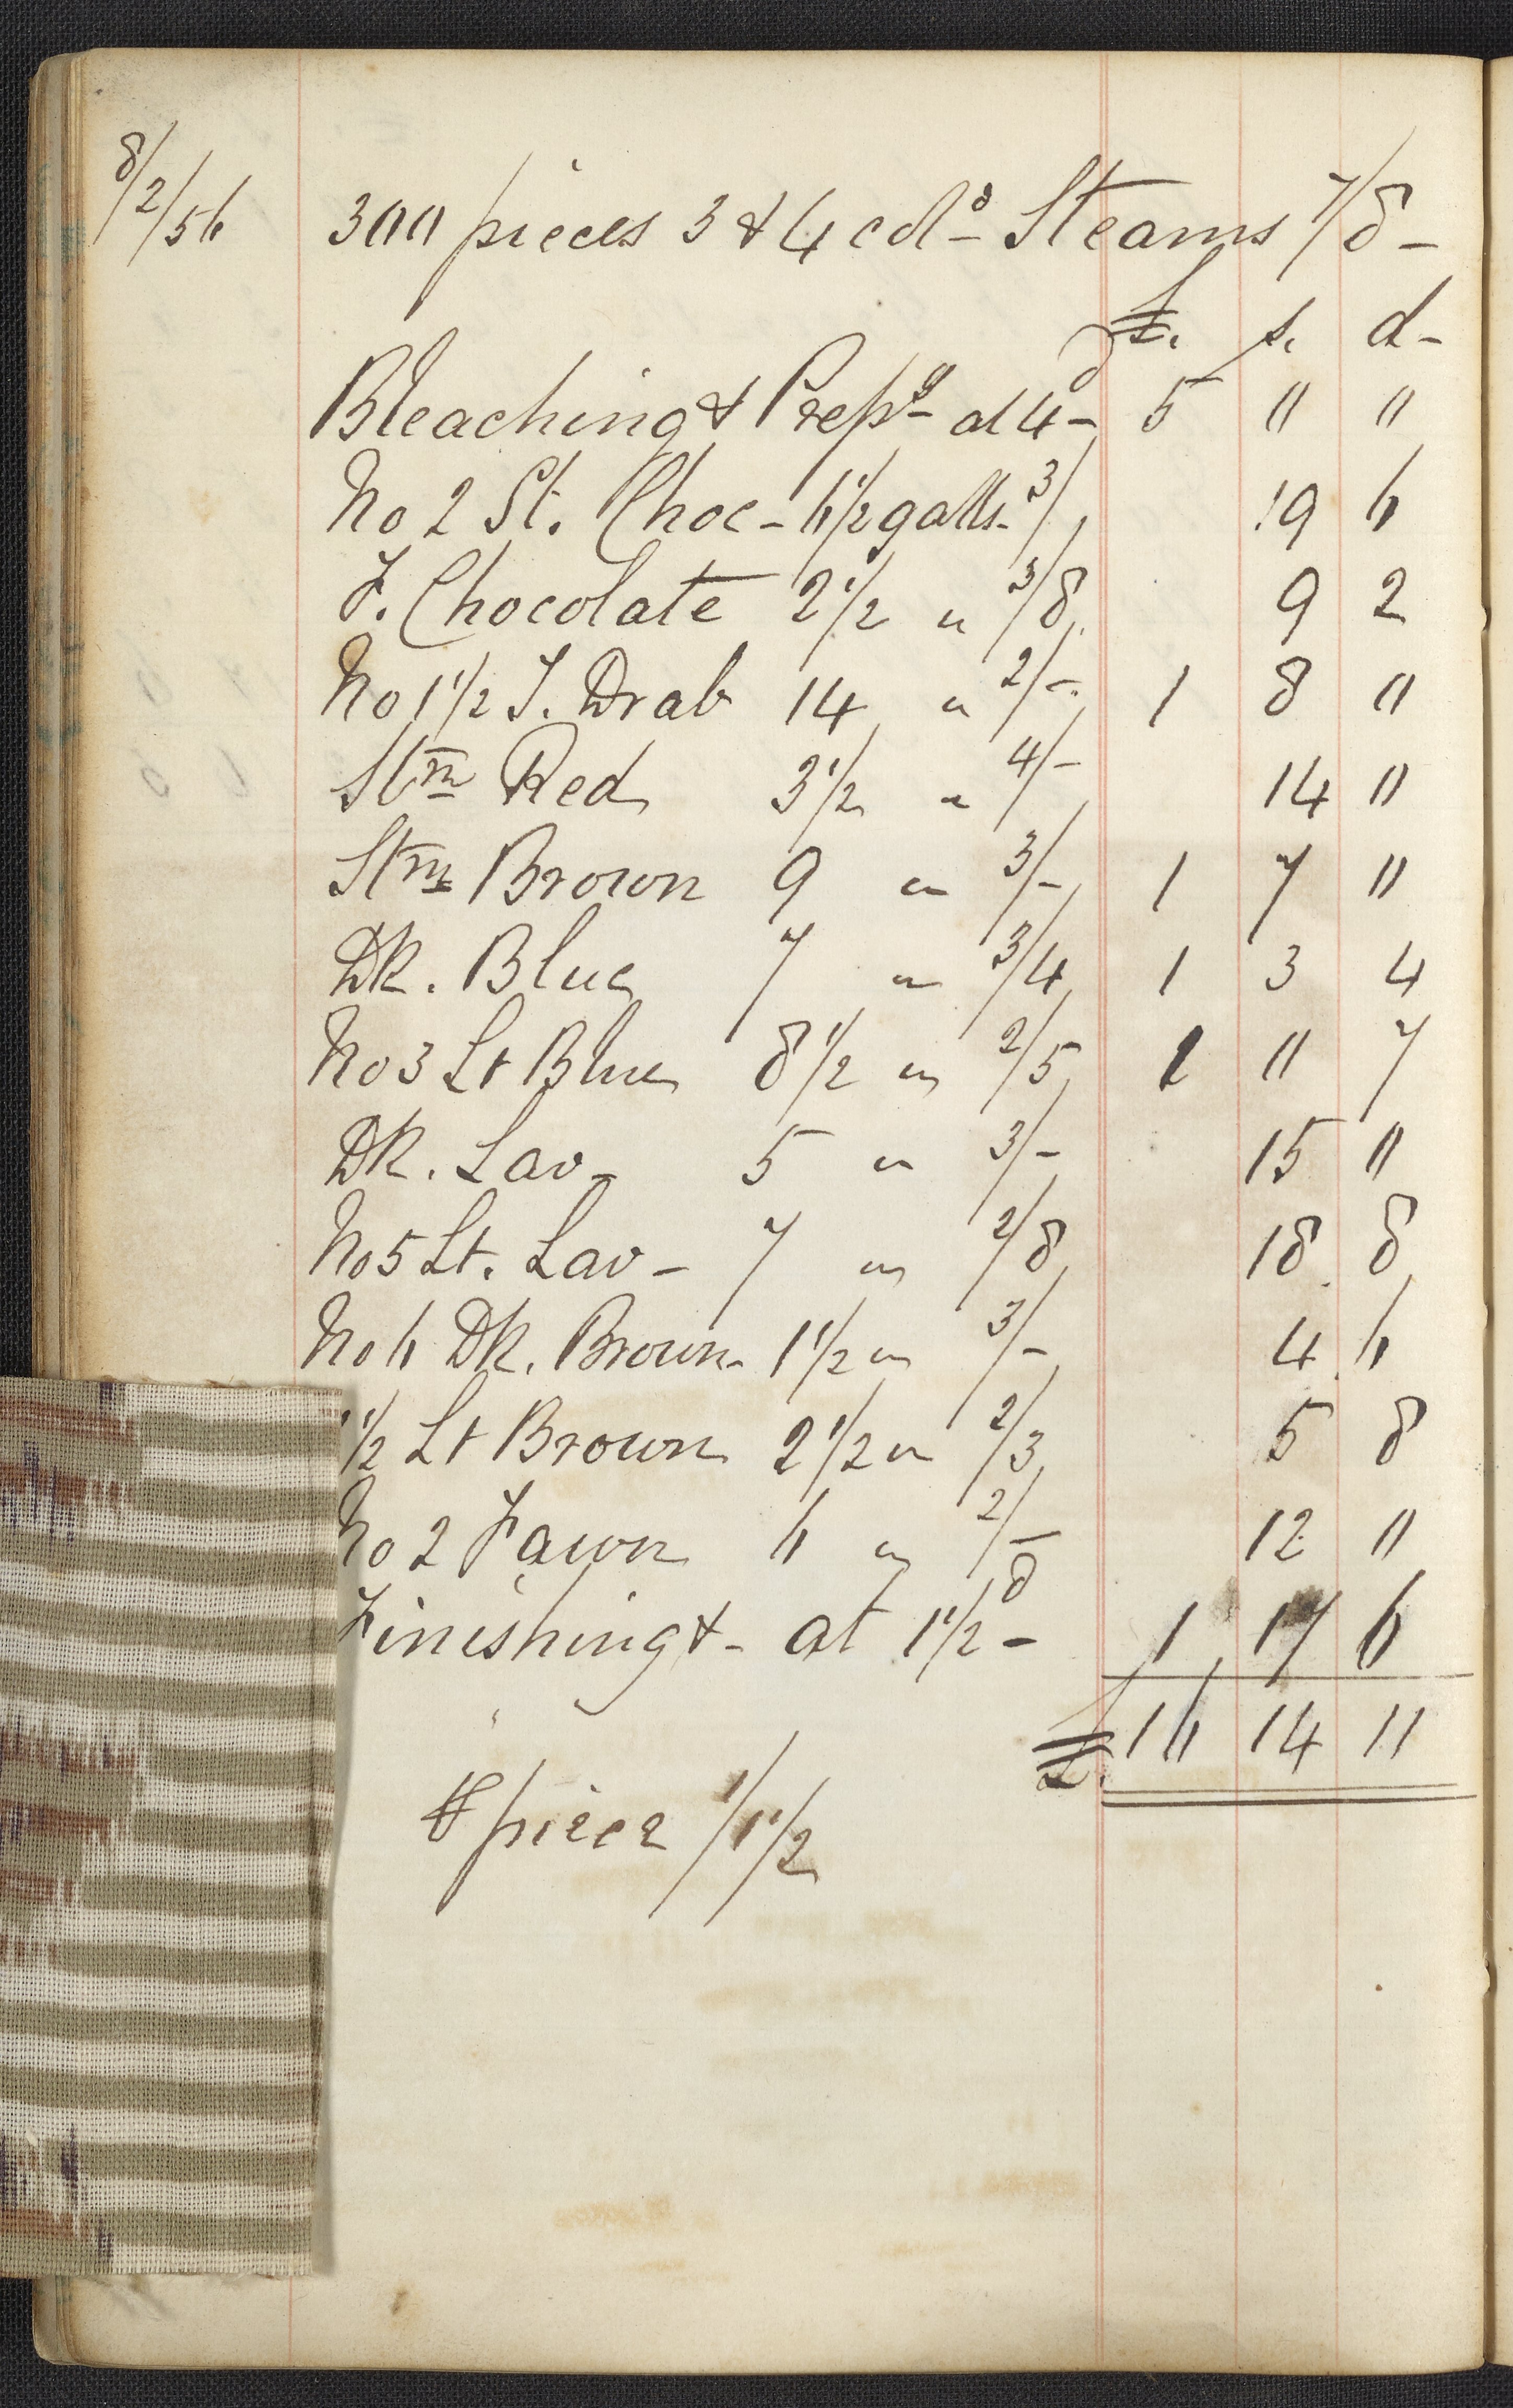 8/2/56 300 pieces 3 & 4 cols Steams 7/8 -
£. s. d -
Bleaching & Prepg at 4d - 5 " "
No 2 St. Choc - 6 1/2 galls 3/ 19 6
F. Chocolate 2 1/2 " 3/8 9 2
No 1 1/2 F. Drab 14 " 2/- 1 8 "
Stm Red 3 1/2 " 4/- 14 "
Stm Brown 9 " 3/- 1 7 "
Dk. Blue 7 " 3/4 1 3 4
No 3 Lt Blue 8 1/2 " 2/5 1 " 7
Dk. Lav - 5 " 3/- 15 "
No 5 Lt. Lav - 7 " 2/8 18 8
No 6 Dk. Brown - 1 1/2 " 3/- 4 6
1/2 Lt Brown 2 1/2 " 2/3 5 8
No 2 Fawn 6 " 2/- 12 "
Finishing & - at 1 1/2d - 1 17 6
£. 16 14 11
⅌ piece 1/1 1/2